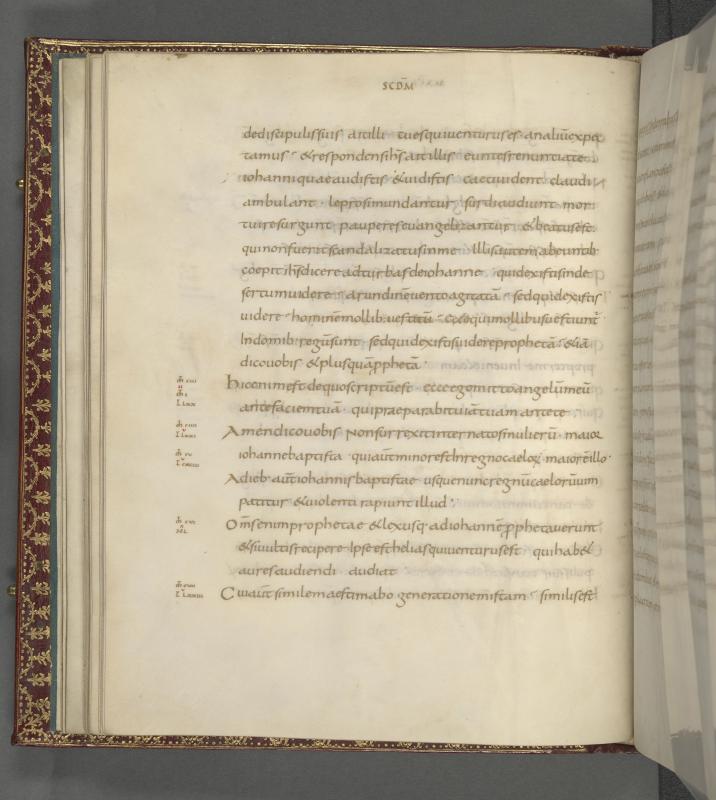 SCDM̄
dediscipulissuis aitilli tuesquiventuruses analiūexpec
tamus · &respondensih̄saitillis euntesrenuntiate
iohanniquaeaudistis &vidistis caecivident claudi
ambulant · leprosimundantur surdiaudiunt mor
tuiresurgunt pauperesevangelizantur &beatusest
quinonfueritscandalizatusinme Illisautemabeuntib·
coepitih̄sdicereadturbasdeiohanne quidexistisinde
sertumvidere · arundinēventoagitatā · sedquidexistis
videre · hominēmollib·vestitū · eccequimollibusvestiunt̄
Indomib·regūsunt · sedquidexistisvidereprophetā · &iā
dicovobis &plusquāp̄phetā ·
hicenimestdequoscriptūest · ecceegomittoangelūmeū
antefaciemtuā · quipraeparabitviātuam antete
Amendicovobis Nonsurrexitinternatosmulierū · maior
iohannebaptista · quiaut̄minorestInregnocaelor̄ maiorē·illo ·
Adieb·aut̄iohannisbaptistae usquenuncregnūcaelorūvim
patitur &violenti rapiunt illud ·
Om̄senimprophetae &lexusq·adiohannēp̄phetaverunt
&sivultisrecipere Ipseestheliasquiventurusest · quihab&
auresaudiendi audiat
Cuiaut̄similemaestimabo generationemistam · similisest